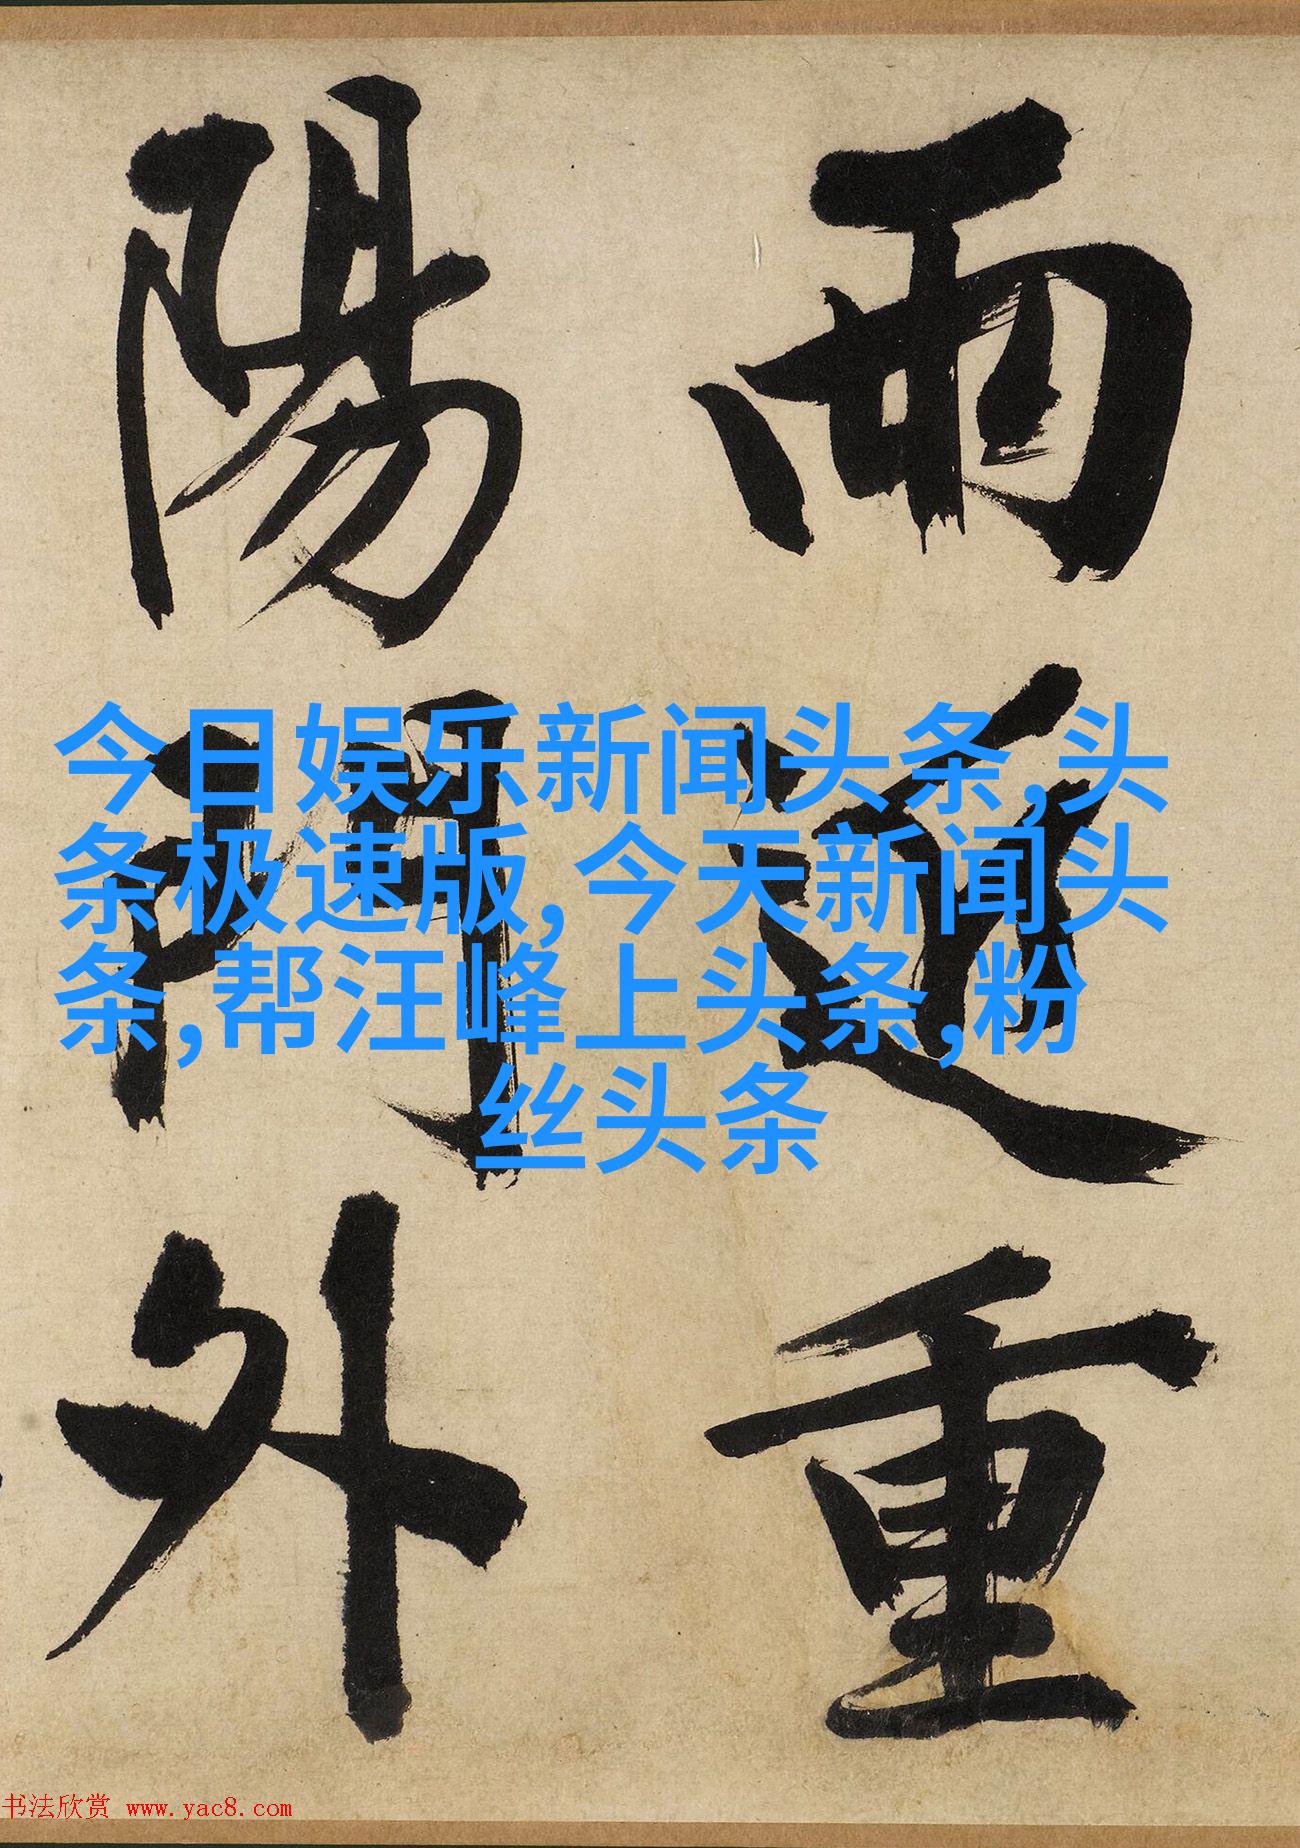 雨近重
陽門外
今日娱乐新闻头条,头
条极速版,今天新闻头
条,帮汪峰上头条,粉
丝头条
书法欣赏 www.yac8.com